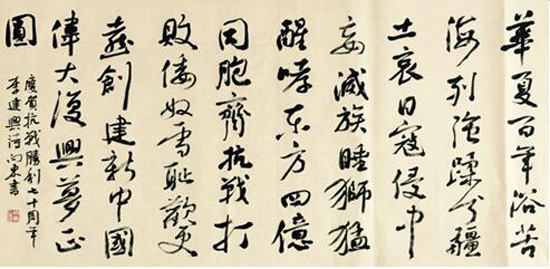 華夏百年浴苦
海列強蹂分疆
土哀日寇侵中
妄滅族睡獅猛
醒哮东方四億
同胞齊抗戰打
敗倭奴雪耻歡更
喜創建新中國
偉大復興夢正
圓
慶賀抗戰勝利七十周年
李建興詩向東書